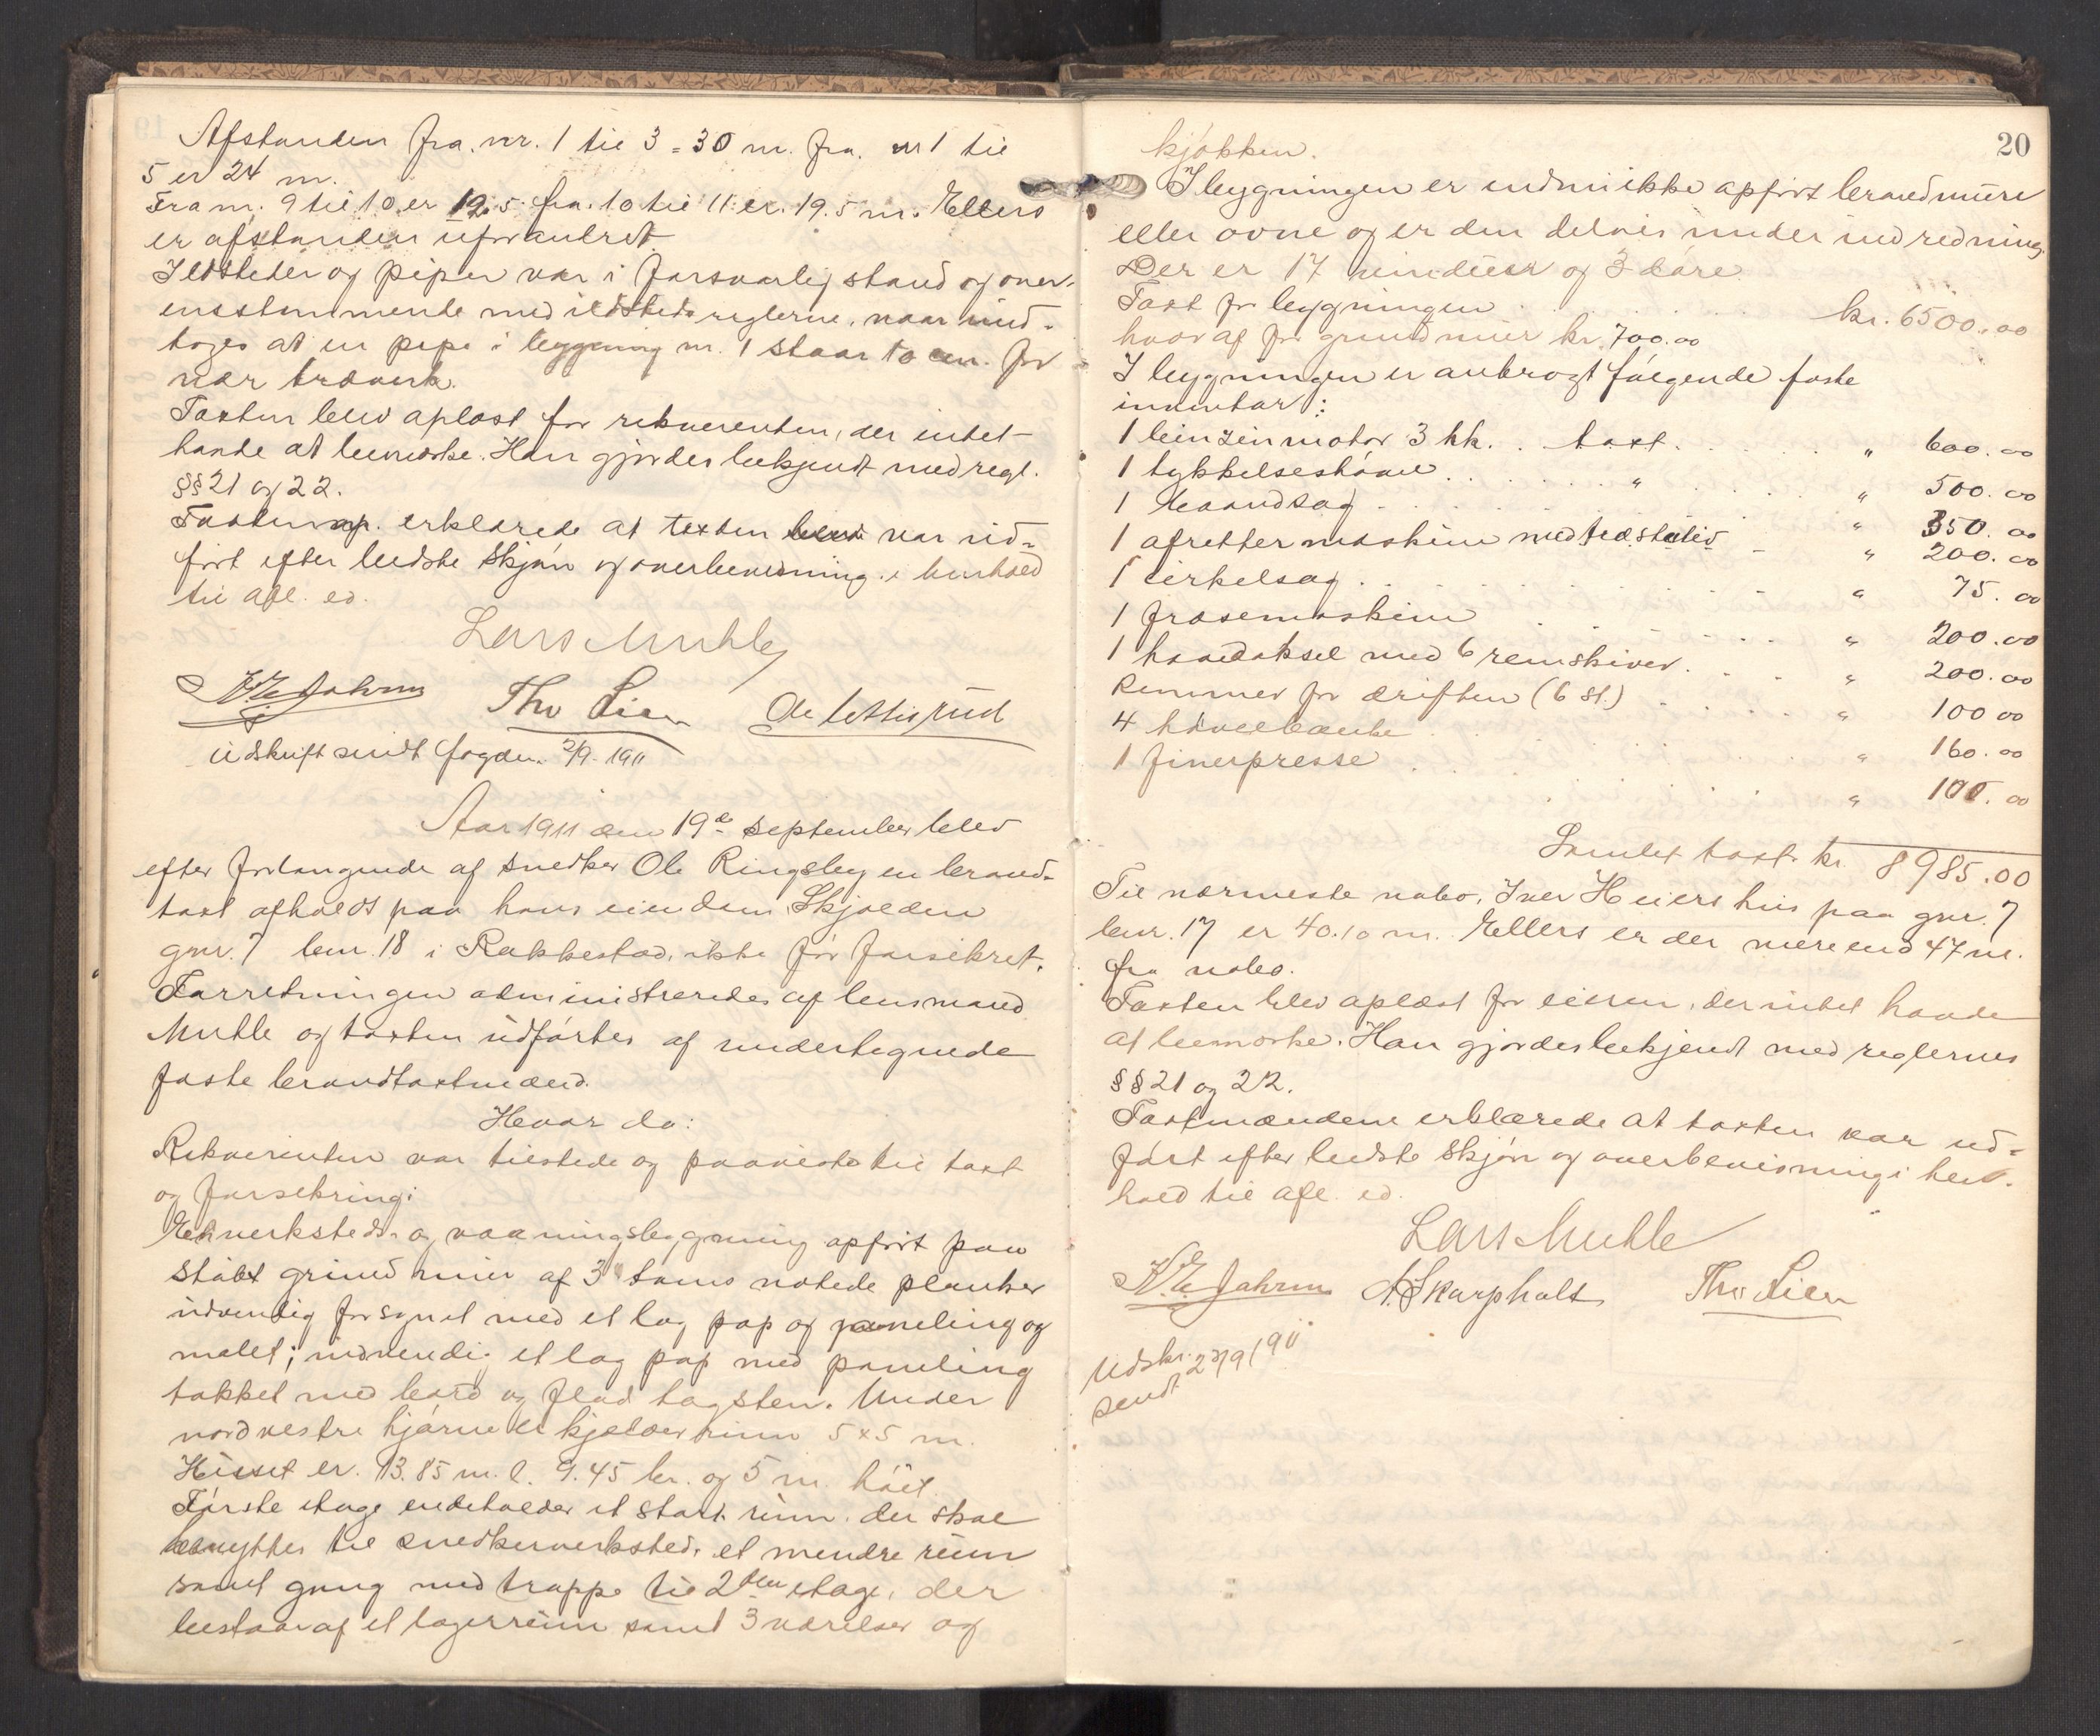 Afstanden fra nr. 1 til 3 = 30 m. fra nr 1 til
5 er 24 m.
Fra nr. 9 til 10 er 12.5. fra 10 til 11 er 19.5 m. Ellers
er afstanden uforandret
Ildsteder og piper var i forsvarlig stand og over-
ensstemmende med ildstedsreglerne, naar und-
tages at en pipe i bygning nr. 1 staar 10 cm. for
nær træverk.
Taxten blev oplæst for rekvirenten, der intet
havde at bemærke. Han gjordes bekjendt med regl.
§§ 21 og 22.
Taxtm.op. erklærede at taxten var ud-
ført efter bedste skjøn og overbevisning i henhold
til afl. ed.
Lars Muhle
Tho Lien
Udskrift sendt fogden 2/9. 1911
Aar 1911 den 19de september blev
efter forlangende af snedker Ole Ringsby en brand-
taxt afholdt paa hans eiendom Skjolden
gnr. 7 bnr. 18 i Rakkestad, ikke før forsikret.
Forretningen administreredes af lensmand
Muhle og taxten udførtes af undertegnede
faste brandtaxtmænd.
Hvor da:
Rekvirenten var tilstede og paaviste til taxt
og forsikring:
En verksteds- og vaaningsbygning opført paa
støbt grundmur af 3" toms notede planker
udvendig forsynet med et lag pap og paneling og
malet; indvendig et lag pap med paneling
takket med bord og flad tagsten. Under
nordvestre hjørne et kjælderrum 5 x 5 m.
Huset er 13.85 m. l. 9.45 br. og 5 m. høit.
Første etage indeholder et stort rum der skal
benyttes til snedkerverksted, et mindre rum
samt gang med trappe til 2den etage, der
bestaar af et lagerrum samt 3 værelser og
20
kjøkken.
I bygningen er endnu ikke opført brandmure
eller ovne og er den delvis under indredning.
Der er 17 vinduer og 3 døre
Taxt for bygningen . . . . kr. 6500.00
hvoraf for grundmur kr. 700.00
I bygningen er anbragt følgende faste
inventar:
1 benzinmotor 3 hk. . taxt . . . . " 600.00
1 tykkelseshøvel . . . . " . . . . " 500.00
1 baandsag . . . . " 350.00
1 afrettermaskine med træstativ - " 200.00
1 cirkelsag . . . . " 75.00
1 fræsemaskine . . . . " 200.00
1 hovedaksel med 6 remskiver . . . " 200.00
Remmer for driften (6 st.) . . . . " 100 00
4 høvelbænke . . . . " 160.00
1 finerpresse . . . . " 100.00
Samlet taxt kr. 8985.00
Til nærmeste nabo, Iver Heiers hus paa gnr. 7
bnr. 17 er 40.10 m. Ellers er der mere end 47 m.
fra nabo.
Taxten blev oplæst for eieren, der intet havde
at bemærke. Han gjordes bekjendt med reglernes
§§ 21 og 22.
Taxtmændene erklærede at taxten var ud-
ført efter bedste skjøn og overbevisning i hen-
hold til afl. ed.
Lars Muhle
A. Skarpholt Tho Lien
Udskr. 23/9 1911
sendt